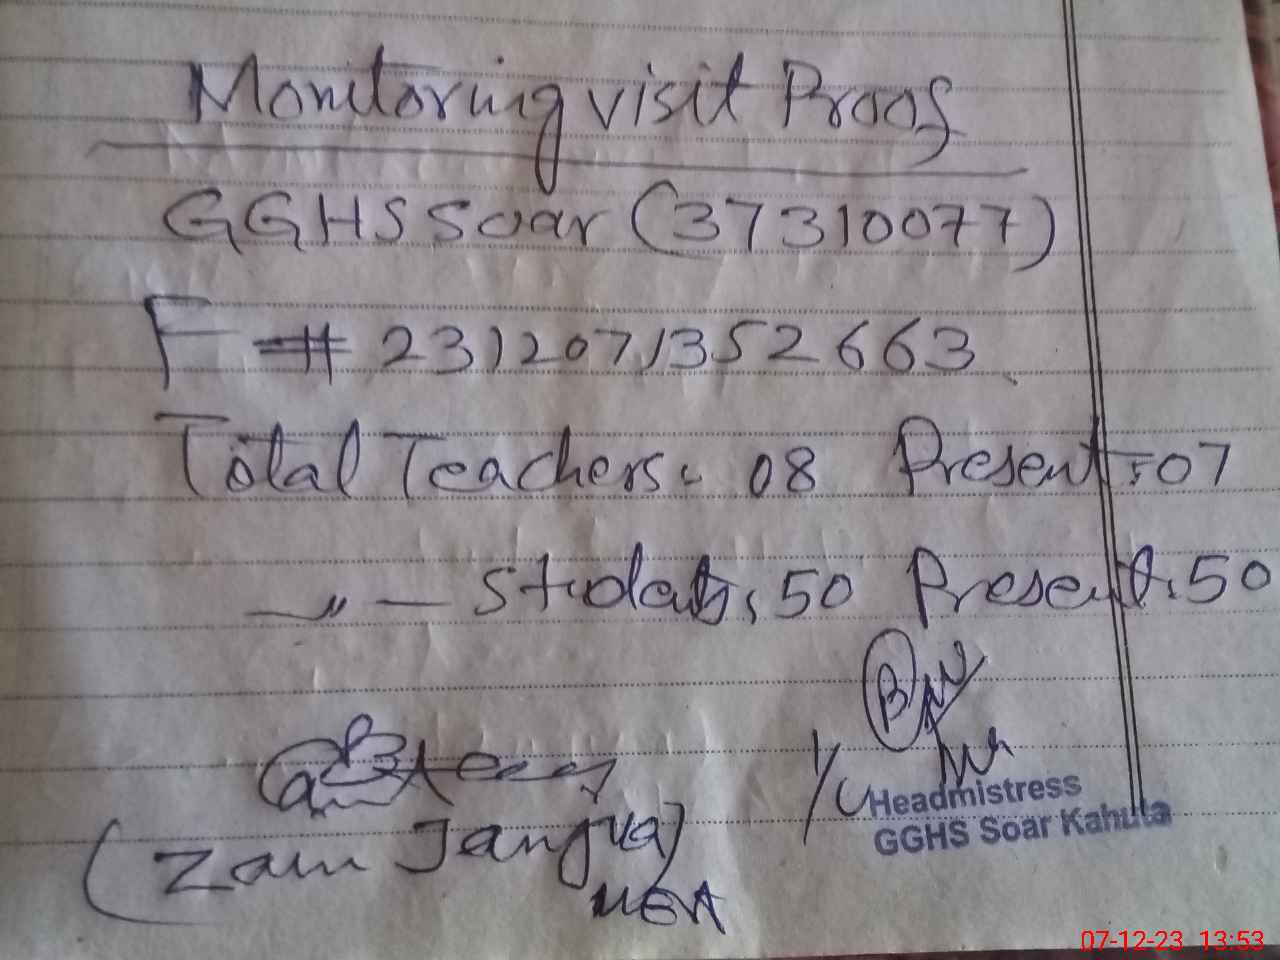 Monitoring visit Proof
GGHS Soar (37310077)
F # 2312071352663
Total Teachers: 08 Present: 07
—〃— Students: 50 Present: 50
I/C
Headmistress
GGHS Soar Kahuta
(Zain Janjua)
MEA
07-12-23 13:53